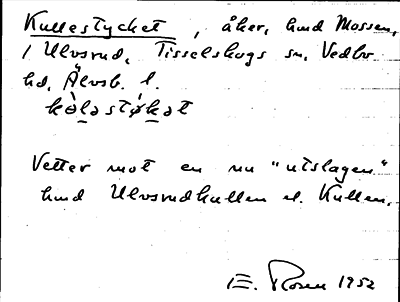 Kullestycket, åker, hmd Mossen,
/ Ulvsrud, Tisselskogs sn, Vedbo
hd, Älvsb. l.
kòləstỳkət
Vetter mot en nu "utslagen"
hmd Ulvsrudkullen el. Kullen.
E. Rosen 1952